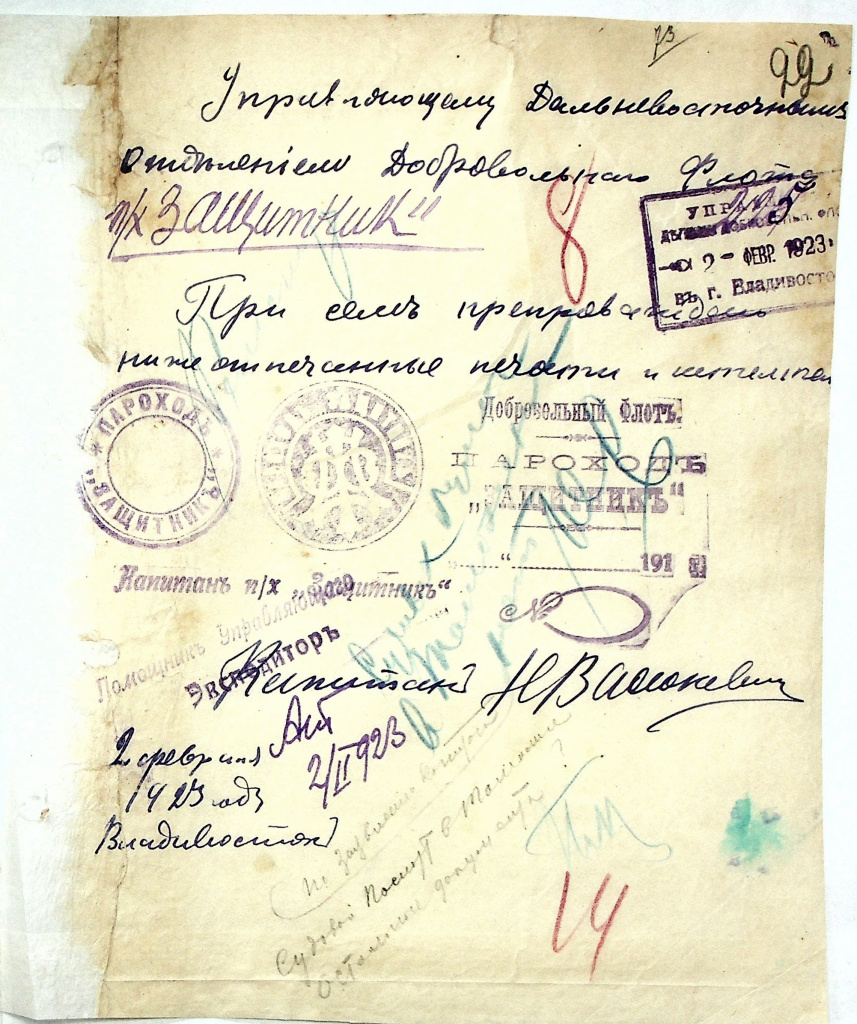 73
99
Управляющему Дальневосточнымъ
Отдѣленіемъ Добровольнаго Флота
п/х ЗАЩИТНИК"
8
225
УПРА
2- ФЕВР. 1923
въ г. Владивосто
При семъ препровождаю
нижеотпечатанные печати и штемпеля
ПАРОХОДЪ
„ЗАЩИТНИКЪ"
Добровольный Флотъ.
ПАРОХОДЪ
„ЗАЩИТНИКЪ"
„ “ 191 г
№
Капитанъ п/х „Защитникъ“
Помощникъ Управляющаго
Экспедиторъ
Капитанъ
2 февраля
1923 года
Владивостокъ
2/II 923
по заявлению
Судовой паспорт в
остальные документы ?
14